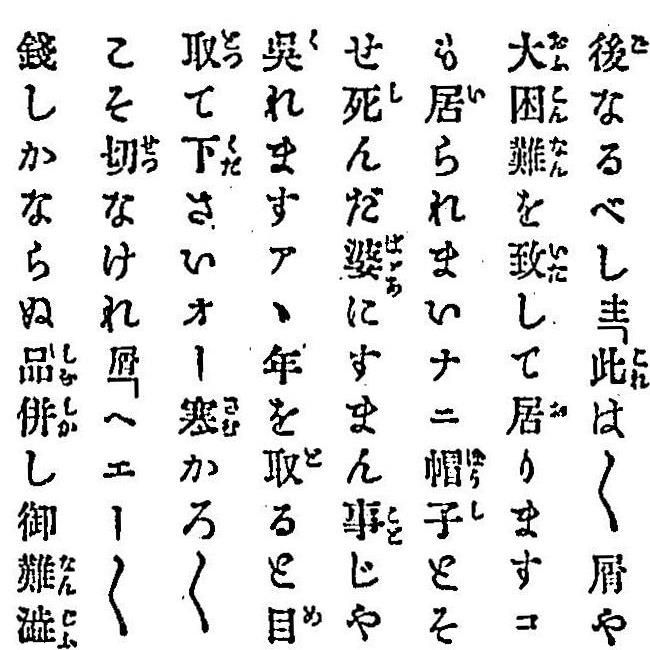 後なるべし圭「此は〱屑や
大困難を致して居りますコ
も居られまいナニ帽子とそ
せ死んだ婆にすまん事じや
呉れますアヽ年を取ると目
取て下さいオー寒かろ〱
こそ切なけれ屑「ヘエー〱
錢しかならぬ品併し御難澁